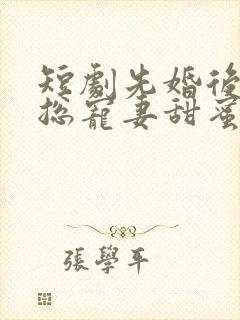 短劇先婚後
總寵妻甜蜜
張學平